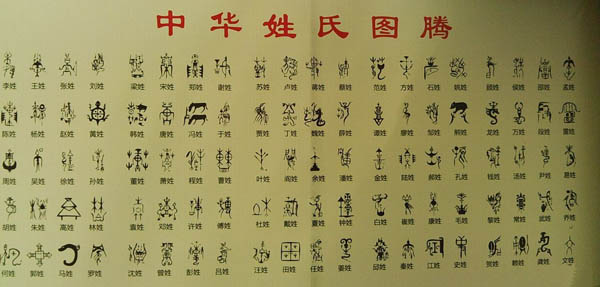 中华姓氏图腾
李姓 王姓 张姓 刘姓 梁姓 宋姓 郑姓 谢姓 苏姓 卢姓 蒋姓 蔡姓 范姓 方姓 石姓 姚姓 顾姓 侯姓 邵姓 孟姓
陈姓 杨姓 赵姓 黄姓 韩姓 唐姓 冯姓 于姓 贾姓 丁姓 魏姓 薛姓 谭姓 廖姓 邹姓 熊姓 龙姓 万姓 段姓 雷姓
周姓 吴姓 徐姓 孙姓 董姓 萧姓 程姓 曹姓 叶姓 阎姓 余姓 潘姓 金姓 陆姓 郝姓 孔姓 钱姓 汤姓 尹姓 易姓
胡姓 朱姓 高姓 林姓 袁姓 邓姓 许姓 傅姓 杜姓 戴姓 夏姓 钟姓 白姓 崔姓 康姓 毛姓 黎姓 常姓 武姓 乔姓
何姓 郭姓 马姓 罗姓 沈姓 曾姓 彭姓 吕姓 汪姓 田姓 任姓 姜姓 邱姓 秦姓 江姓 史姓 贺姓 赖姓 龚姓 文姓